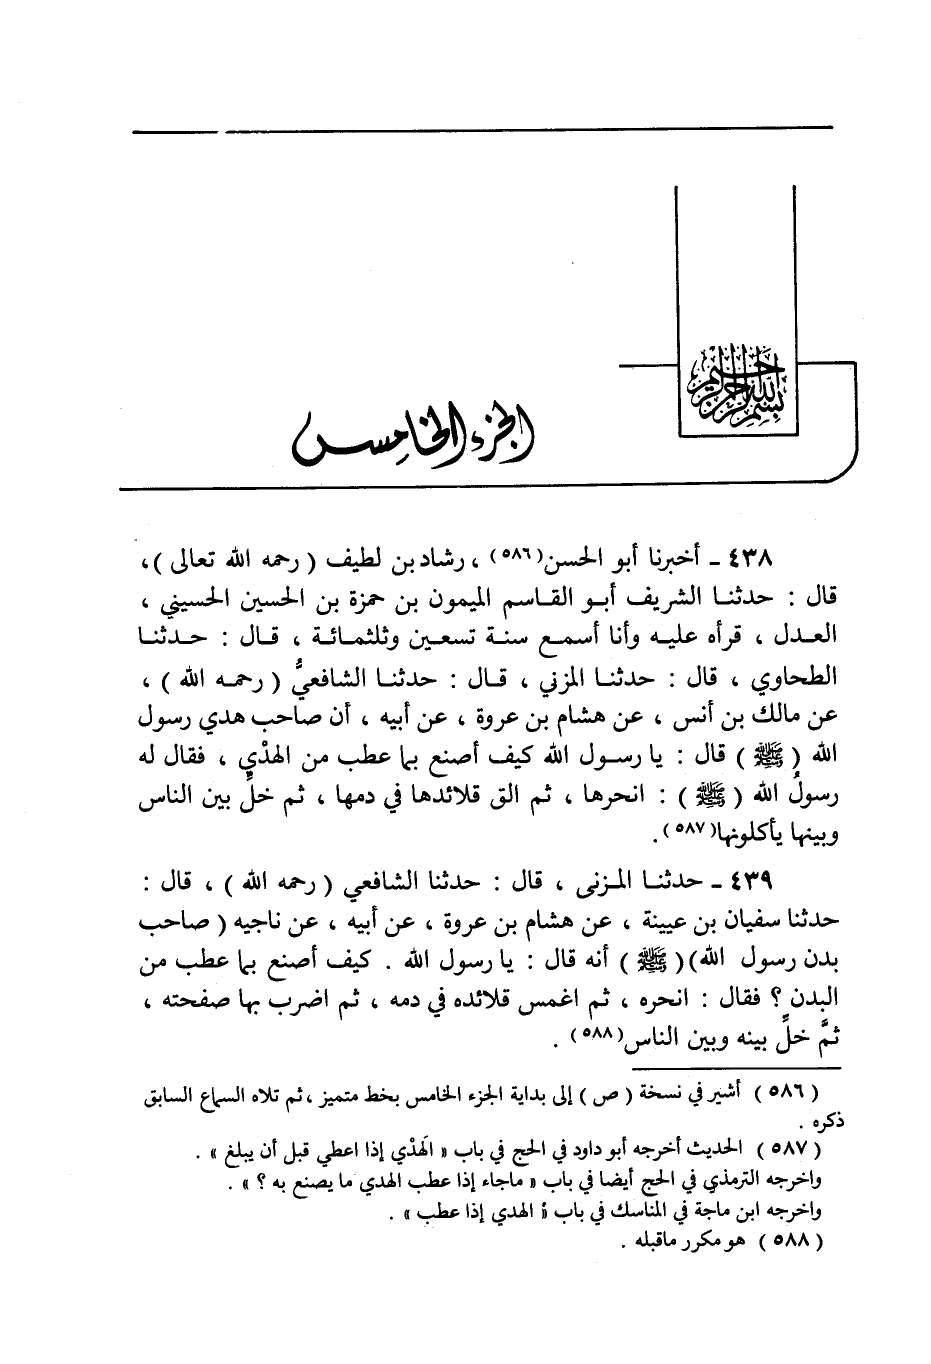 بسم الله الرحمن الرحيم
الجزء الخامس
٤٣٨ - أخبرنا أبو الحسن(٥٨٦) ، رشاد بن لطيف ( رحمه الله تعالى )،
قال : حدثنا الشريف أبو القاسم الميمون بن حمزة بن الحسين الحسيني ،
العدل ، قرأه عليه وأنا أسمع سنة تسعين وثلثمائة ، قال : حدثنا
الطحاوي ، قال : حدثنا المزني ، قال : حدثنا الشافعيُّ ( رحمه الله ) ،
عن مالك بن أنس ، عن هشام بن عروة ، عن أبيه ، أن صاحب هدي رسول
الله ( ﷺ ) قال : يا رسول الله كيف أصنع بما عطب من الهدْيِ ، فقال له
رسولُ الله ( ﷺ ) : انحرها ، ثم الق قلائدها في دمها ، ثم خلِّ بين الناس
وبينها يأكلونها(٥٨٧).
٤٣٩ - حدثنا المزنى ، قال : حدثنا الشافعي ( رحمه الله ) ، قال :
حدثنا سفيان بن عيينة ، عن هشام بن عروة ، عن أبيه ، عن ناجيه ( صاحب
بدن رسول الله)( ﷺ ) أنه قال : يا رسول الله . كيف أصنع بما عطب من
البدن ؟ فقال : انحره ، ثم اغمس قلائده في دمه ، ثم اضرب بها صفحته ،
ثمَّ خلِّ بينه وبين الناس(٥٨٨) .
( ٥٨٦ ) أشير في نسخة ( ص ) إلى بداية الجزء الخامس بخط متميز ، ثم تلاه السماع السابق
ذكره .
( ٥٨٧ ) الحديث أخرجه أبو داود في الحج في باب « الَهدْي إذا اعطي قبل أن يبلغ » .
واخرجه الترمذي في الحج أيضا في باب « ماجاء إذا عطب الهدي ما يصنع به ؟ » .
واخرجه ابن ماجة في المناسك في باب « الهدي إذا عطب » .
( ٥٨٨ ) هو مكرر ماقبله .